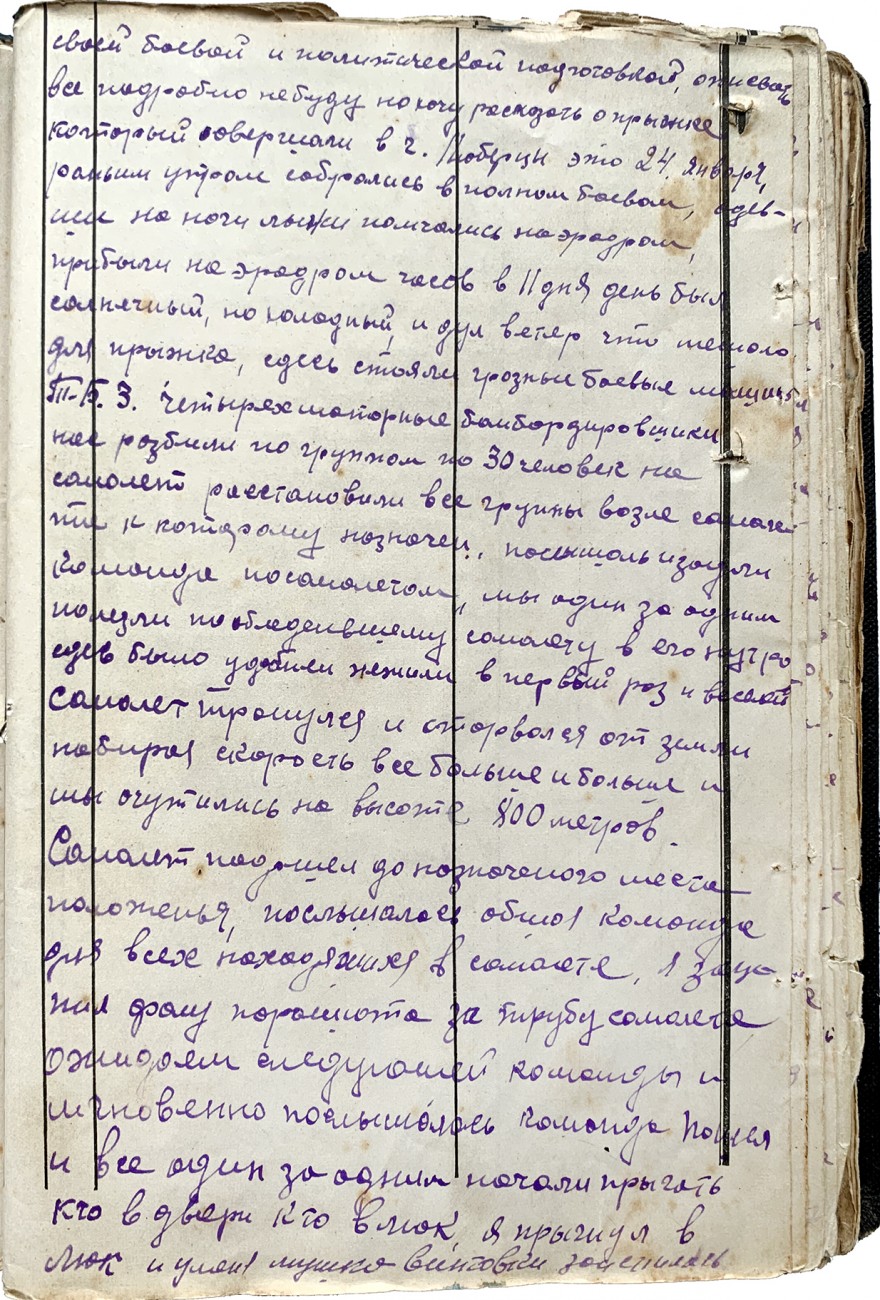 своей боевой и политической подготовкой, описевать
все подробно небуду но хочу расказать о прыжке
который совершали в г. Люберцы это 24. января,
раньим утром собрались в полном боевом, одев-
ши на ноги лыжи помчались на эродром,
прибыли на эродром часов в 11 дня день был
солнечный, но холодный, и дул ветер что мешало
для прыжка, сдесь стояли грозные боевые машины
Т.Б.3. четырехмоторные бомбордировщики
нас розбили по группом по 30 человек на
самолет расстановили все группы возле самоле-
та к которому назначен,
команда посамолетом, мы один за одним
полезли по обледеневшему самолету в его нутро
сдев было удобнен нежили в первый раз и весьма
самолет тронулся и оторвался от земли
набирая скорость все больше и больше и
мы очутились на высоте 800 метров.
Самолет подошел до назначеного места
положенья, послышалось общая команда
для всех находящихся в самолете, я заце-
пил фалу парашюта за трубу самолета
ожидаем следующей команды и
мгновенно послышалось команда пошел
и все один за одним начали прыгать
кто в двери кто в люк, я прыгнул в
люк и умоня мушка винтовки зацепилась